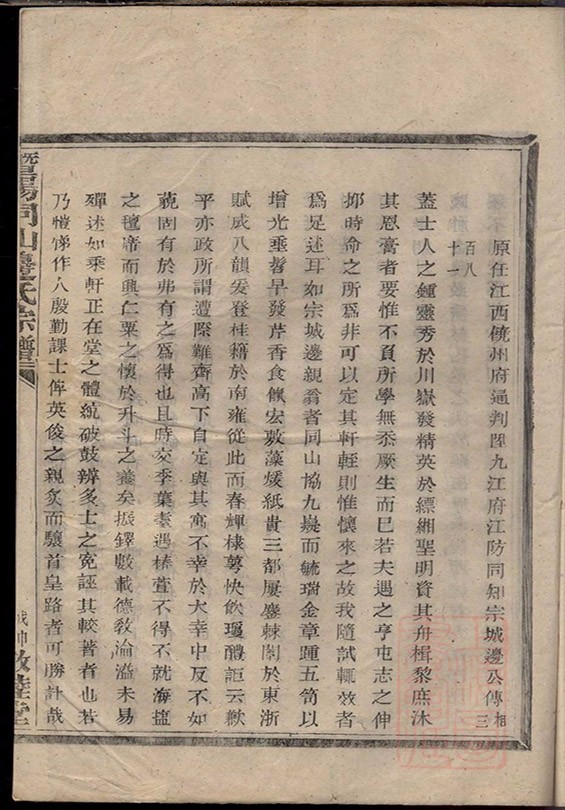 原任江西饒州府通判陞九江府江防同知宗城邊公傳 相三
百八
十一
蓋士人之鍾靈秀於川嶽發精英於縹緗聖明資其舟楫黎庶沐
其恩膏者要惟不負所學無忝厥生而巳若夫遇之亨屯志之伸
抑時命之所為非可以定其軒輊則惟懷來之故我隨試輒效者
為足述耳如宗城邊親翁者同山協九嶷而毓瑞金章踵五笥以
增光垂髫早發芹香食餼宏敷藻煖紙貴三都屢鏖棘闈於東浙
賦成八韻爰登桂籍於南雍從此而春輝棣萼快飲瓊醴詎云歉
乎亦政所謂遭際難齊高下自定與其寓不幸於大幸中反不如
藐固有於弗有之為得也且時交季葉素遇椿萱不得不就海鹽
之氊帝而興仁粟之懷於升斗之養矣振鐸數載德敎淪溢未易
殫述如乘軒正在堂之體統破鼓辨多士之寃誣其較著者也若
乃愷悌作人殷勤課士俾英俊之親炙而驤首皇路者可勝計哉
暨陽同山邊氏宗譜
戊申 敦睦堂